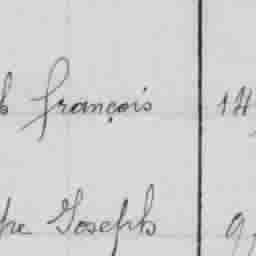 françois 14
Joseph 9